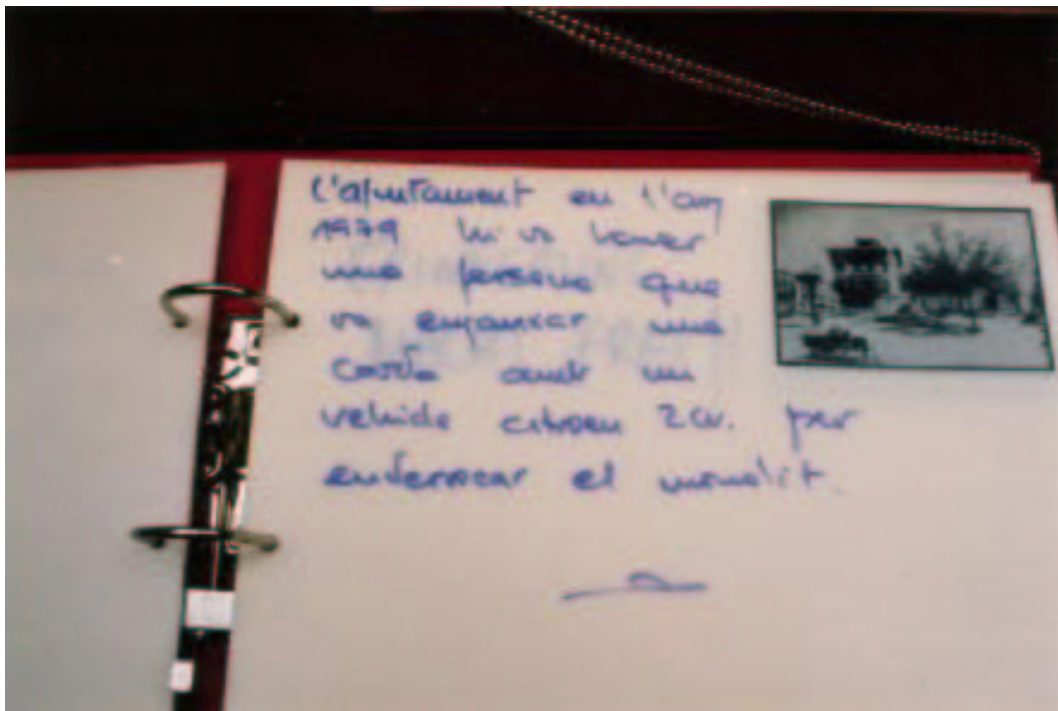 L'ajuntament en l'any
1979 hi va haver
una persona que
va enganxar una
corda amb un
vehicle citroen 2cv. per
enderrocar el monolit.